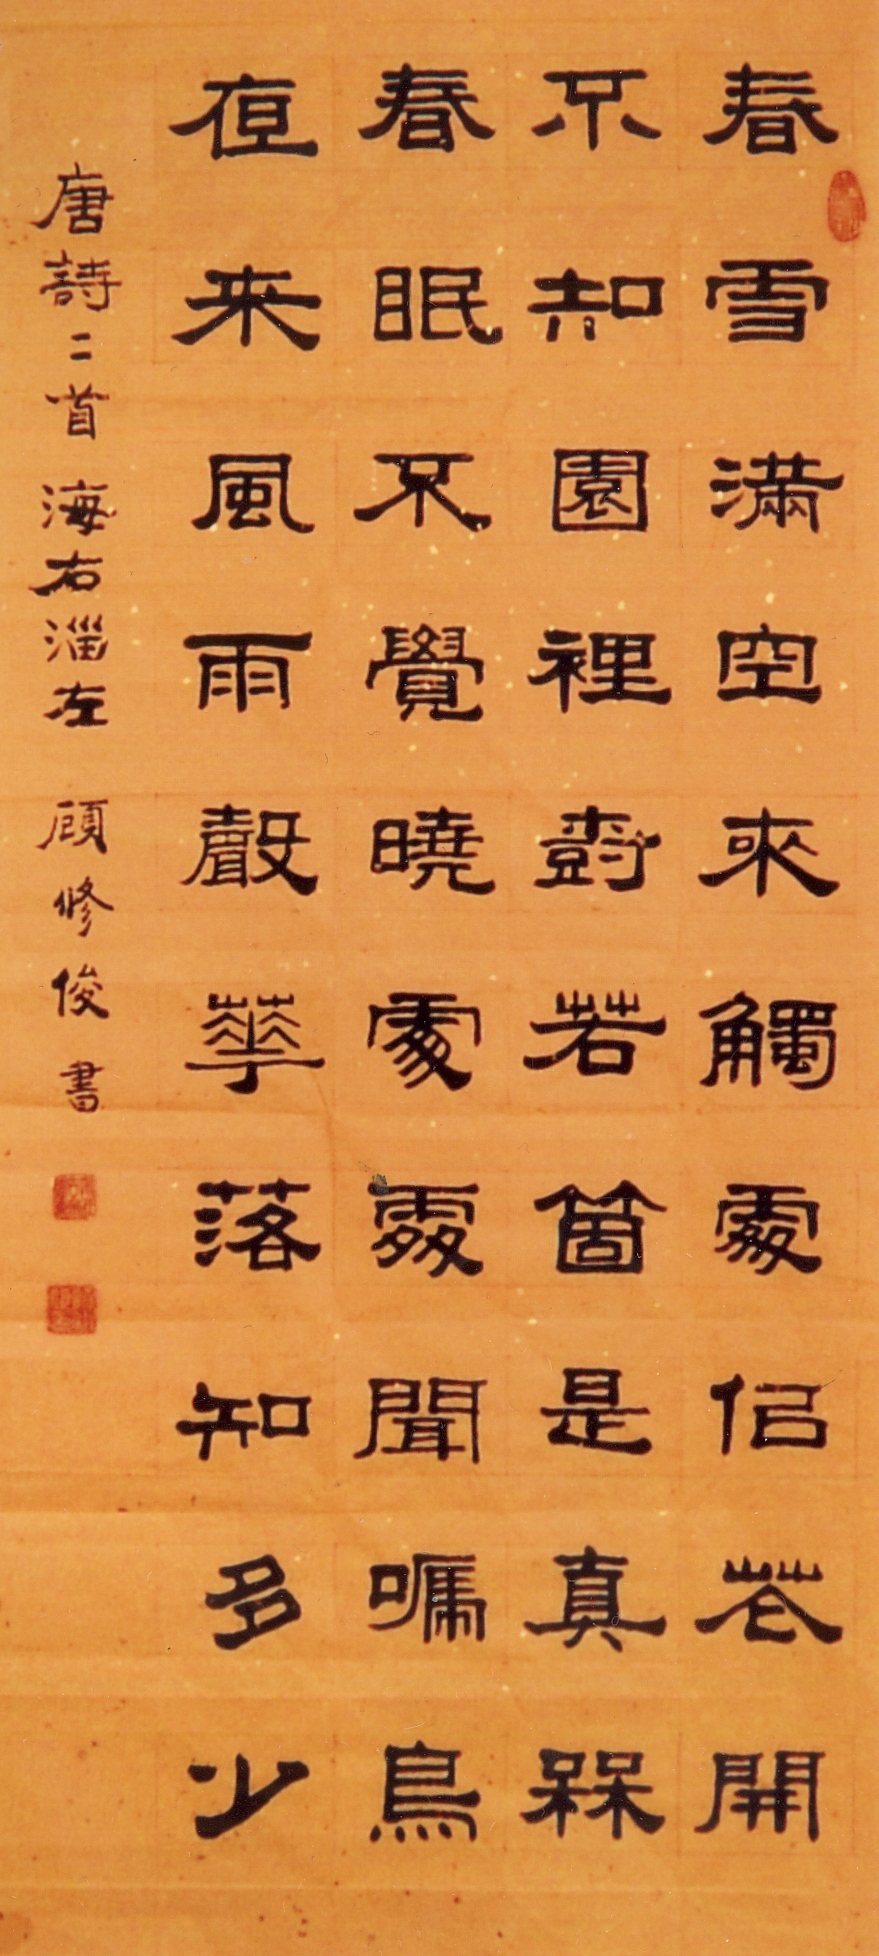 春雪滿空來觸處侣花開
不知園裡樹若箇是真槑
春眠不覺曉處處聞嘺鳥
夜来風雨聲華落知多少
唐詩二首 海右淄左 顾修俊書